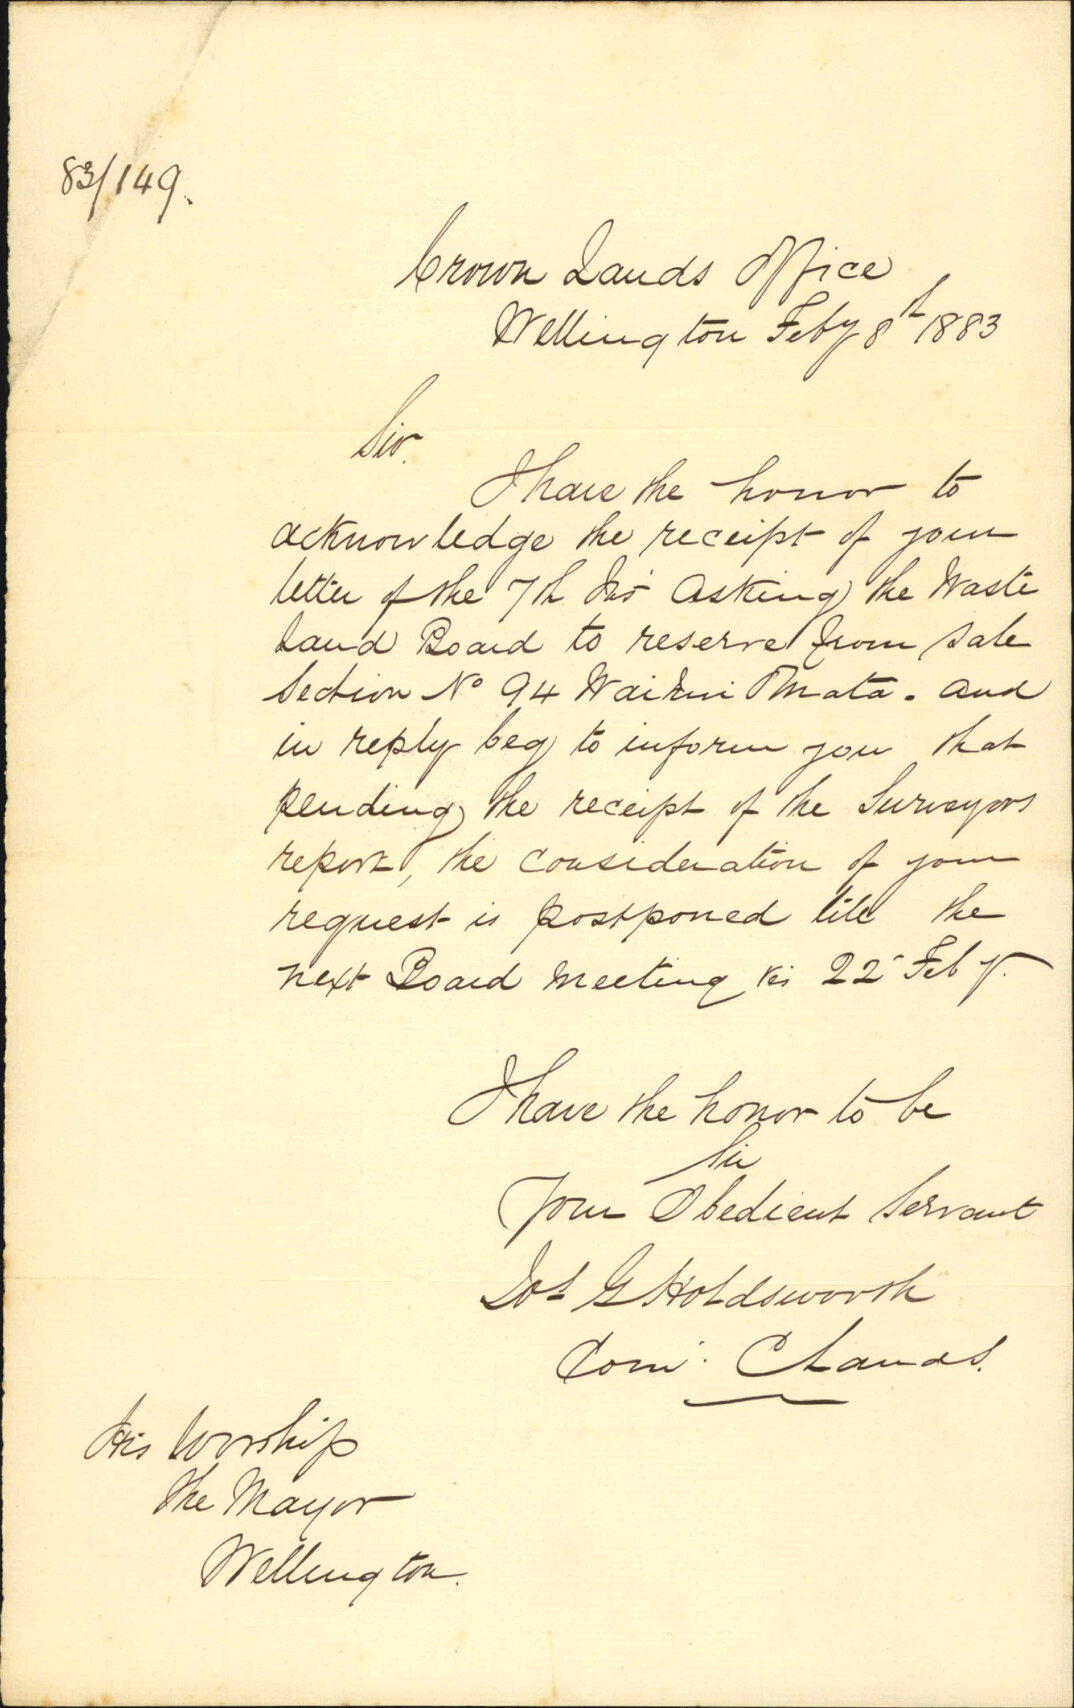 83/149.
Crown Lands Office
Wellington Feby 8th 1883
Sir.
I have the honor to
acknowledge the receipt of your
letter of the 7th Ins asking the Waste
Land Board to reserve from sale
Section No 94 Wainui Omata. and
in reply beg to inform you that
pending the receipt of the Surveyors
report, the consideration of your
request is postponed till the
next Board Meeting 22 Feby.
I have the honor to be
Sir
Your Obedient Servant
Jos G Holdsworth
Com. C Lands.
His Worship
the Mayor
Wellington.